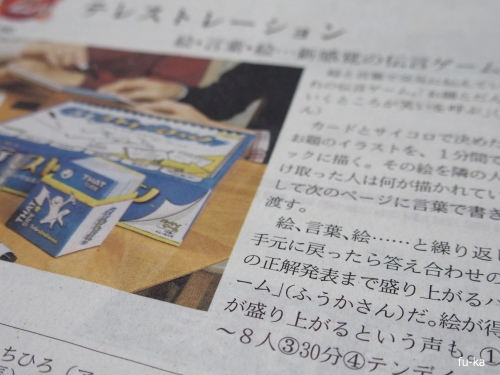 テレストレーション
絵・言葉・絵…新感覚の伝言ゲーム
カードとサイコロで決めた
お題のイラストを、1分間で
ックに描く。その絵を隣の人
け取った人は何が描かれてい
して次のページに言葉で書き
渡す。
絵、言葉、絵……と繰り返し
手元に戻ったら答え合わせの
の正解発表まで盛り上がるパ
ーム」(ふうかさん)だ。絵が得
が盛り上がるという声も。①
〜8人③30分④テンデイ
ちひろ
fu-ka